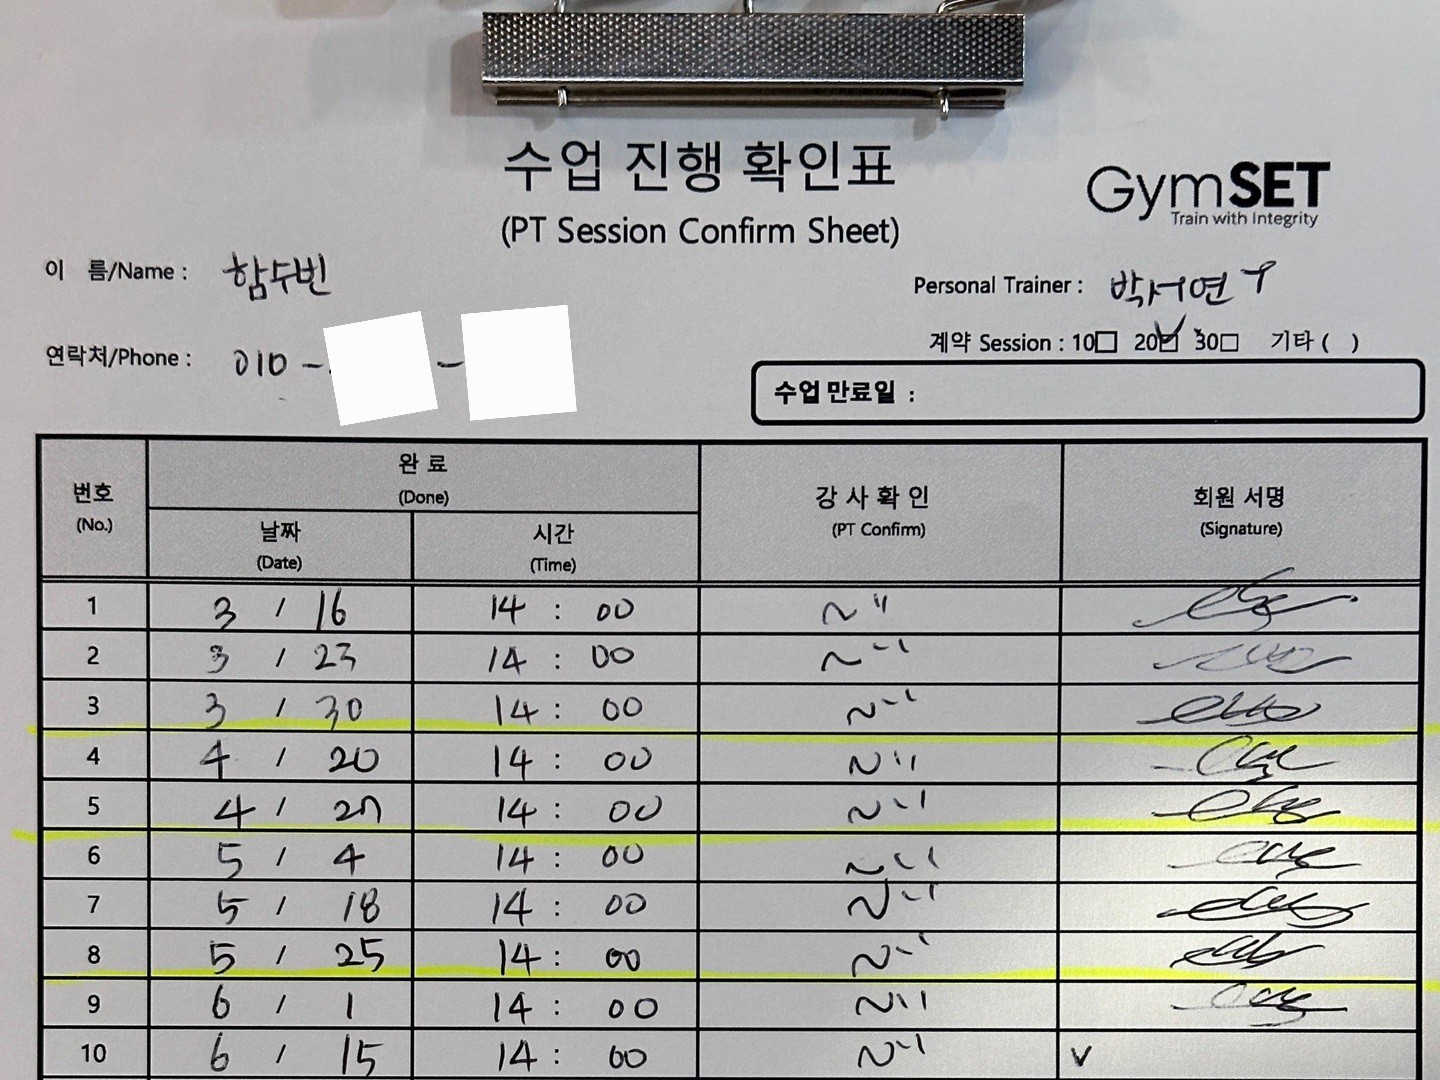 수업 진행 확인표
(PT Session Confirm Sheet)
GymSET
Train with Integrity
이 름/Name : 함수빈
Personal Trainer : 박서연
연락처/Phone : 010 - -
계약 Session : 10□ 20☑ 30□ 기타 ( )
수업 만료일 :
번호 (No.)
완 료 (Done)
날짜 (Date)
시간 (Time)
강 사 확 인 (PT Confirm)
회원 서명 (Signature)
1 3 / 16 14 : 00
2 3 / 23 14 : 00
3 3 / 30 14 : 00
4 4 / 20 14 : 00
5 4 / 27 14 : 00
6 5 / 4 14 : 00
7 5 / 18 14 : 00
8 5 / 25 14 : 00
9 6 / 1 14 : 00
10 6 / 15 14 : 00 v